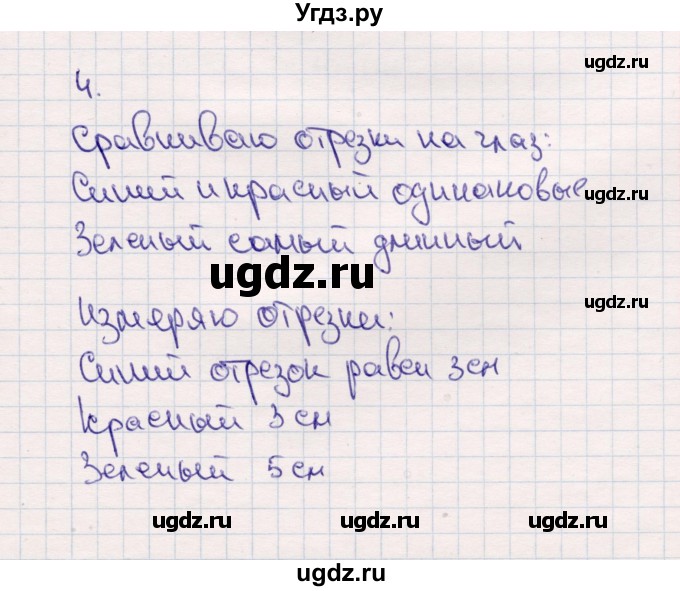 Угдз.ру
ugdz.ru
4.
Сравниваю отрезки на глаз:
Синий и красный одинаковые
ugdz.ru
Зеленый самый длинный
ugdz.ru
Измеряю отрезки:
ugdz.ru
Синий отрезок равен 3см
Красный 3см
Зеленый 5см
ugdz.ru ugdz.ru ugdz.ru
ugdz.ru